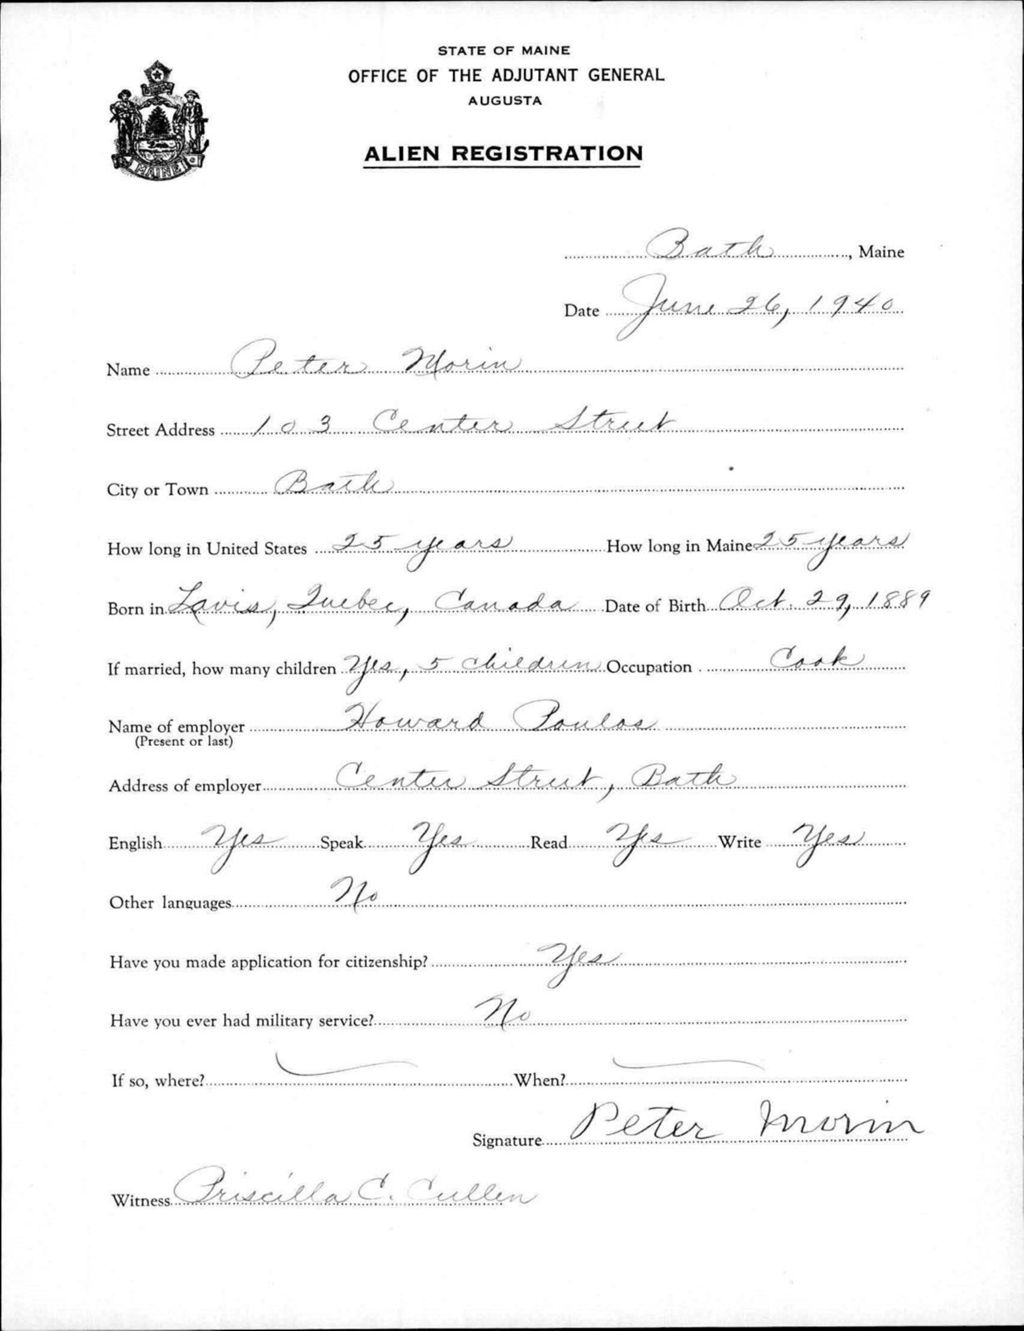 STATE OF MAINE
OFFICE OF THE ADJUTANT GENERAL
AUGUSTA
ALIEN REGISTRATION
MAINE
Bath, Maine
Date June 26, 1940
Name Peter Morin
Street Address 103 Center Street
City or Town Bath
How long in United States 25 years How long in Maine 25 years
Born in Lavis, Quebec, Canada Date of Birth Oct. 29, 1889
If married, how many children Yes, 5 children Occupation Cook
Name of employer Howard Poulos
(Present or last)
Address of employer Center Street, Bath
English Yes Speak Yes Read Yes Write Yes
Other languages No
Have you made application for citizenship? Yes
Have you ever had military service? No
If so, where? When?
Signature Peter Morin
Witness Priscilla C. Cullen